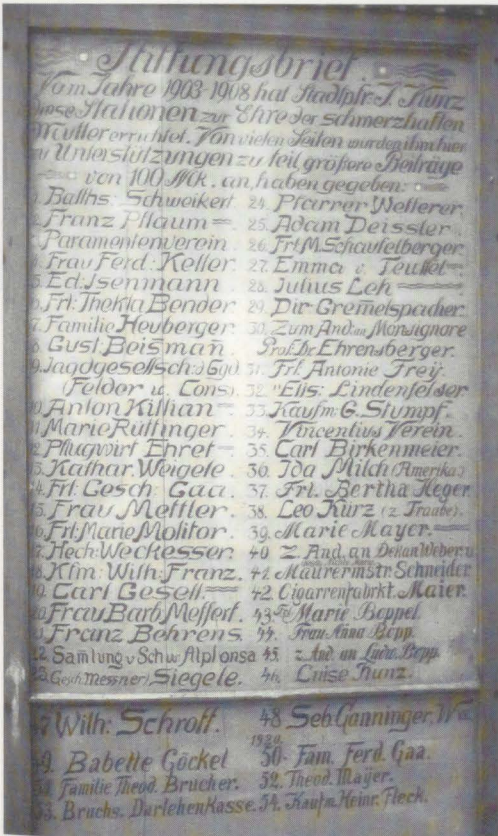 Stiftungsbrief.
Vom Jahre 1903-1908 hat Stadtpfr. J. Kunz
diese Stationen zur Ehre der schmerzhaften
Mutter errichtet. Von vielen Seiten wurden ihm hier
zu Unterstützungen zu teil, größere Beiträge
von 100 Mk. an, haben gegeben:
Balths: Schweikert
Franz Pflaum
Paramentenverein.
Frau Ferd: Keller.
5. Ed: Isenmann
6. Frl: Thekla Bender
7. Familie Heuberger.
8 Gust: Beismañ.
9. Jagdgesellsch:
(Felder u. Cons).
10. Anton Killian
11. Marie Rüttinger.
12. Pflugwirt Ehret
13. Kathar. Weigele
14. Frl: Gesch: Gaa.
15. Frau Mettler.
16. Frl: Marie Molitor.
17. Hech: Weckesser.
18. Kfm: Wilh: Franz.
19. Carl Gesell.
20. Frau Barb. Meffert.
21. Franz Behrens.
22. Samlung v Schw: Alplonsa
23. Siegele.
24. Pfarrer Wetterer.
25. Adam Deissler.
26. Frl. M. Schaufelberger.
27. Emma v. Teuffel
28. Julius Leh
29. Dir Gremelspacher.
30. Zum And: an Monsignore
Prof. Dr Ehrensberger.
31. Frl. Antonie Frey.
32. "Elis: Lindenfelser
33. Kaufm: G. Stumpf.
34. Vincentius Verein.
35. Carl Birkenmeier.
36. Ida Milch (Amerika.)
37. Frl. Bertha Heger
38. Leo Kurz (z Traube).
39. Marie Mayer.
40 z. And. an Dekan Weber u.
41. Maurermstr. Schneider
42. Cigarrenfabrkt. Maier.
43. Marie Boppel.
44. Frau Anna Bopp.
45. z And. an Ludw. Bopp.
46. Luise Kunz.
47 Wilh: Schrott.
48 Seb. Ganninger,
49. Babette Göckel
50. Fam. Ferd. Gaa.
51 Familie Theod. Brucher.
52. Theod. Mayer.
53. Bruchs. Darlehenkasse.
54. Kaufm. Heinr. Fleck.